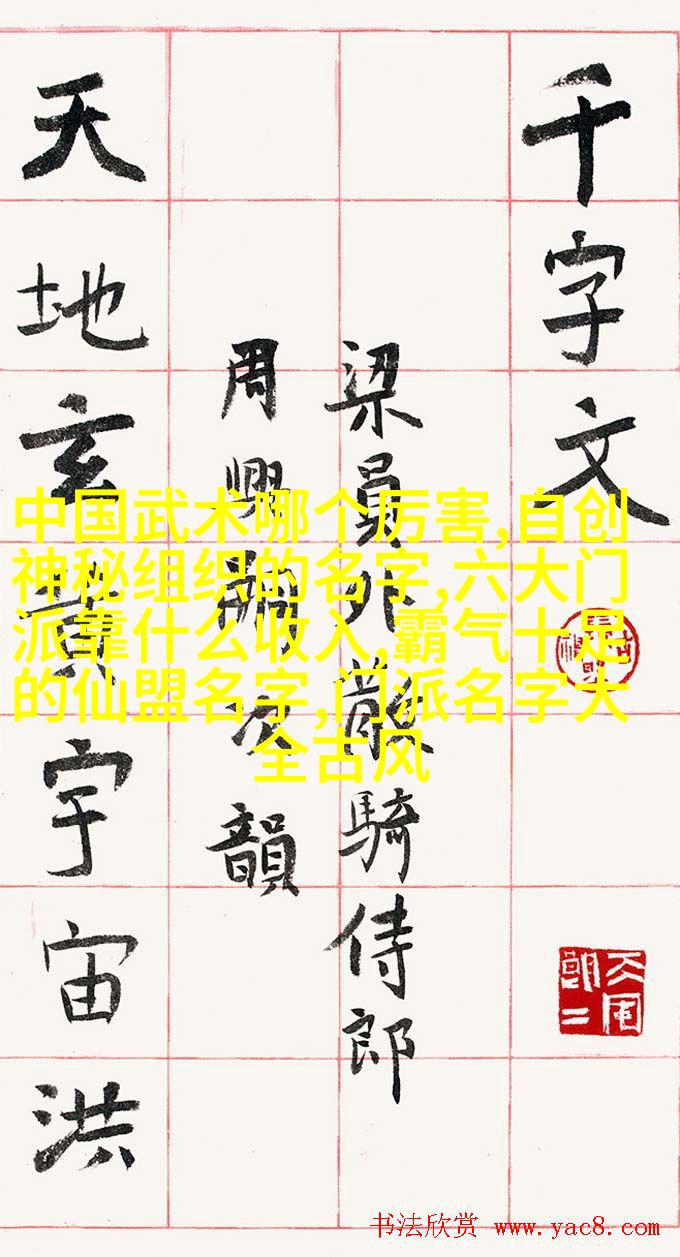 千字文
梁員外散騎侍郎
周興嗣次韻
天地玄黄宇宙洪
中国武术哪个厉害,自创
神秘组织的名字,六大门
派靠什么收入,霸气十足
的仙盟名字,门派名字大
全古风
书法欣赏 www.yac8.com